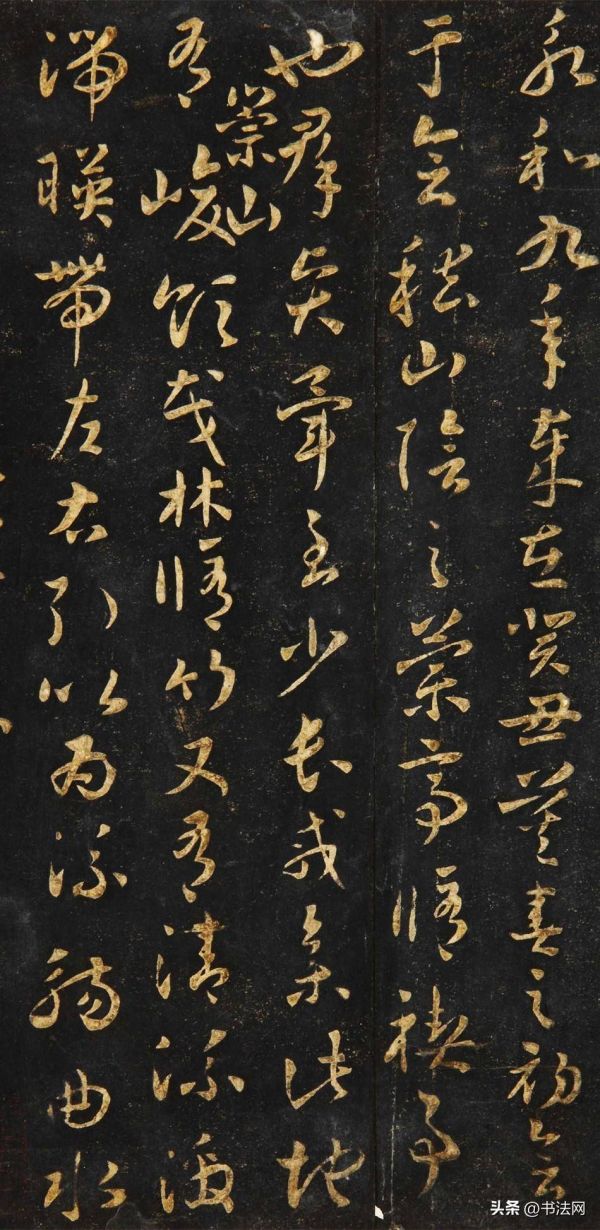 永和九年歲在癸丑暮春之初會
于會稽山陰之蘭亭脩禊事
也群賢畢至少長咸集此地
有崇山峻領茂林脩竹又有清流激
湍暎帶左右引以為流觴曲水
头条 @书法网